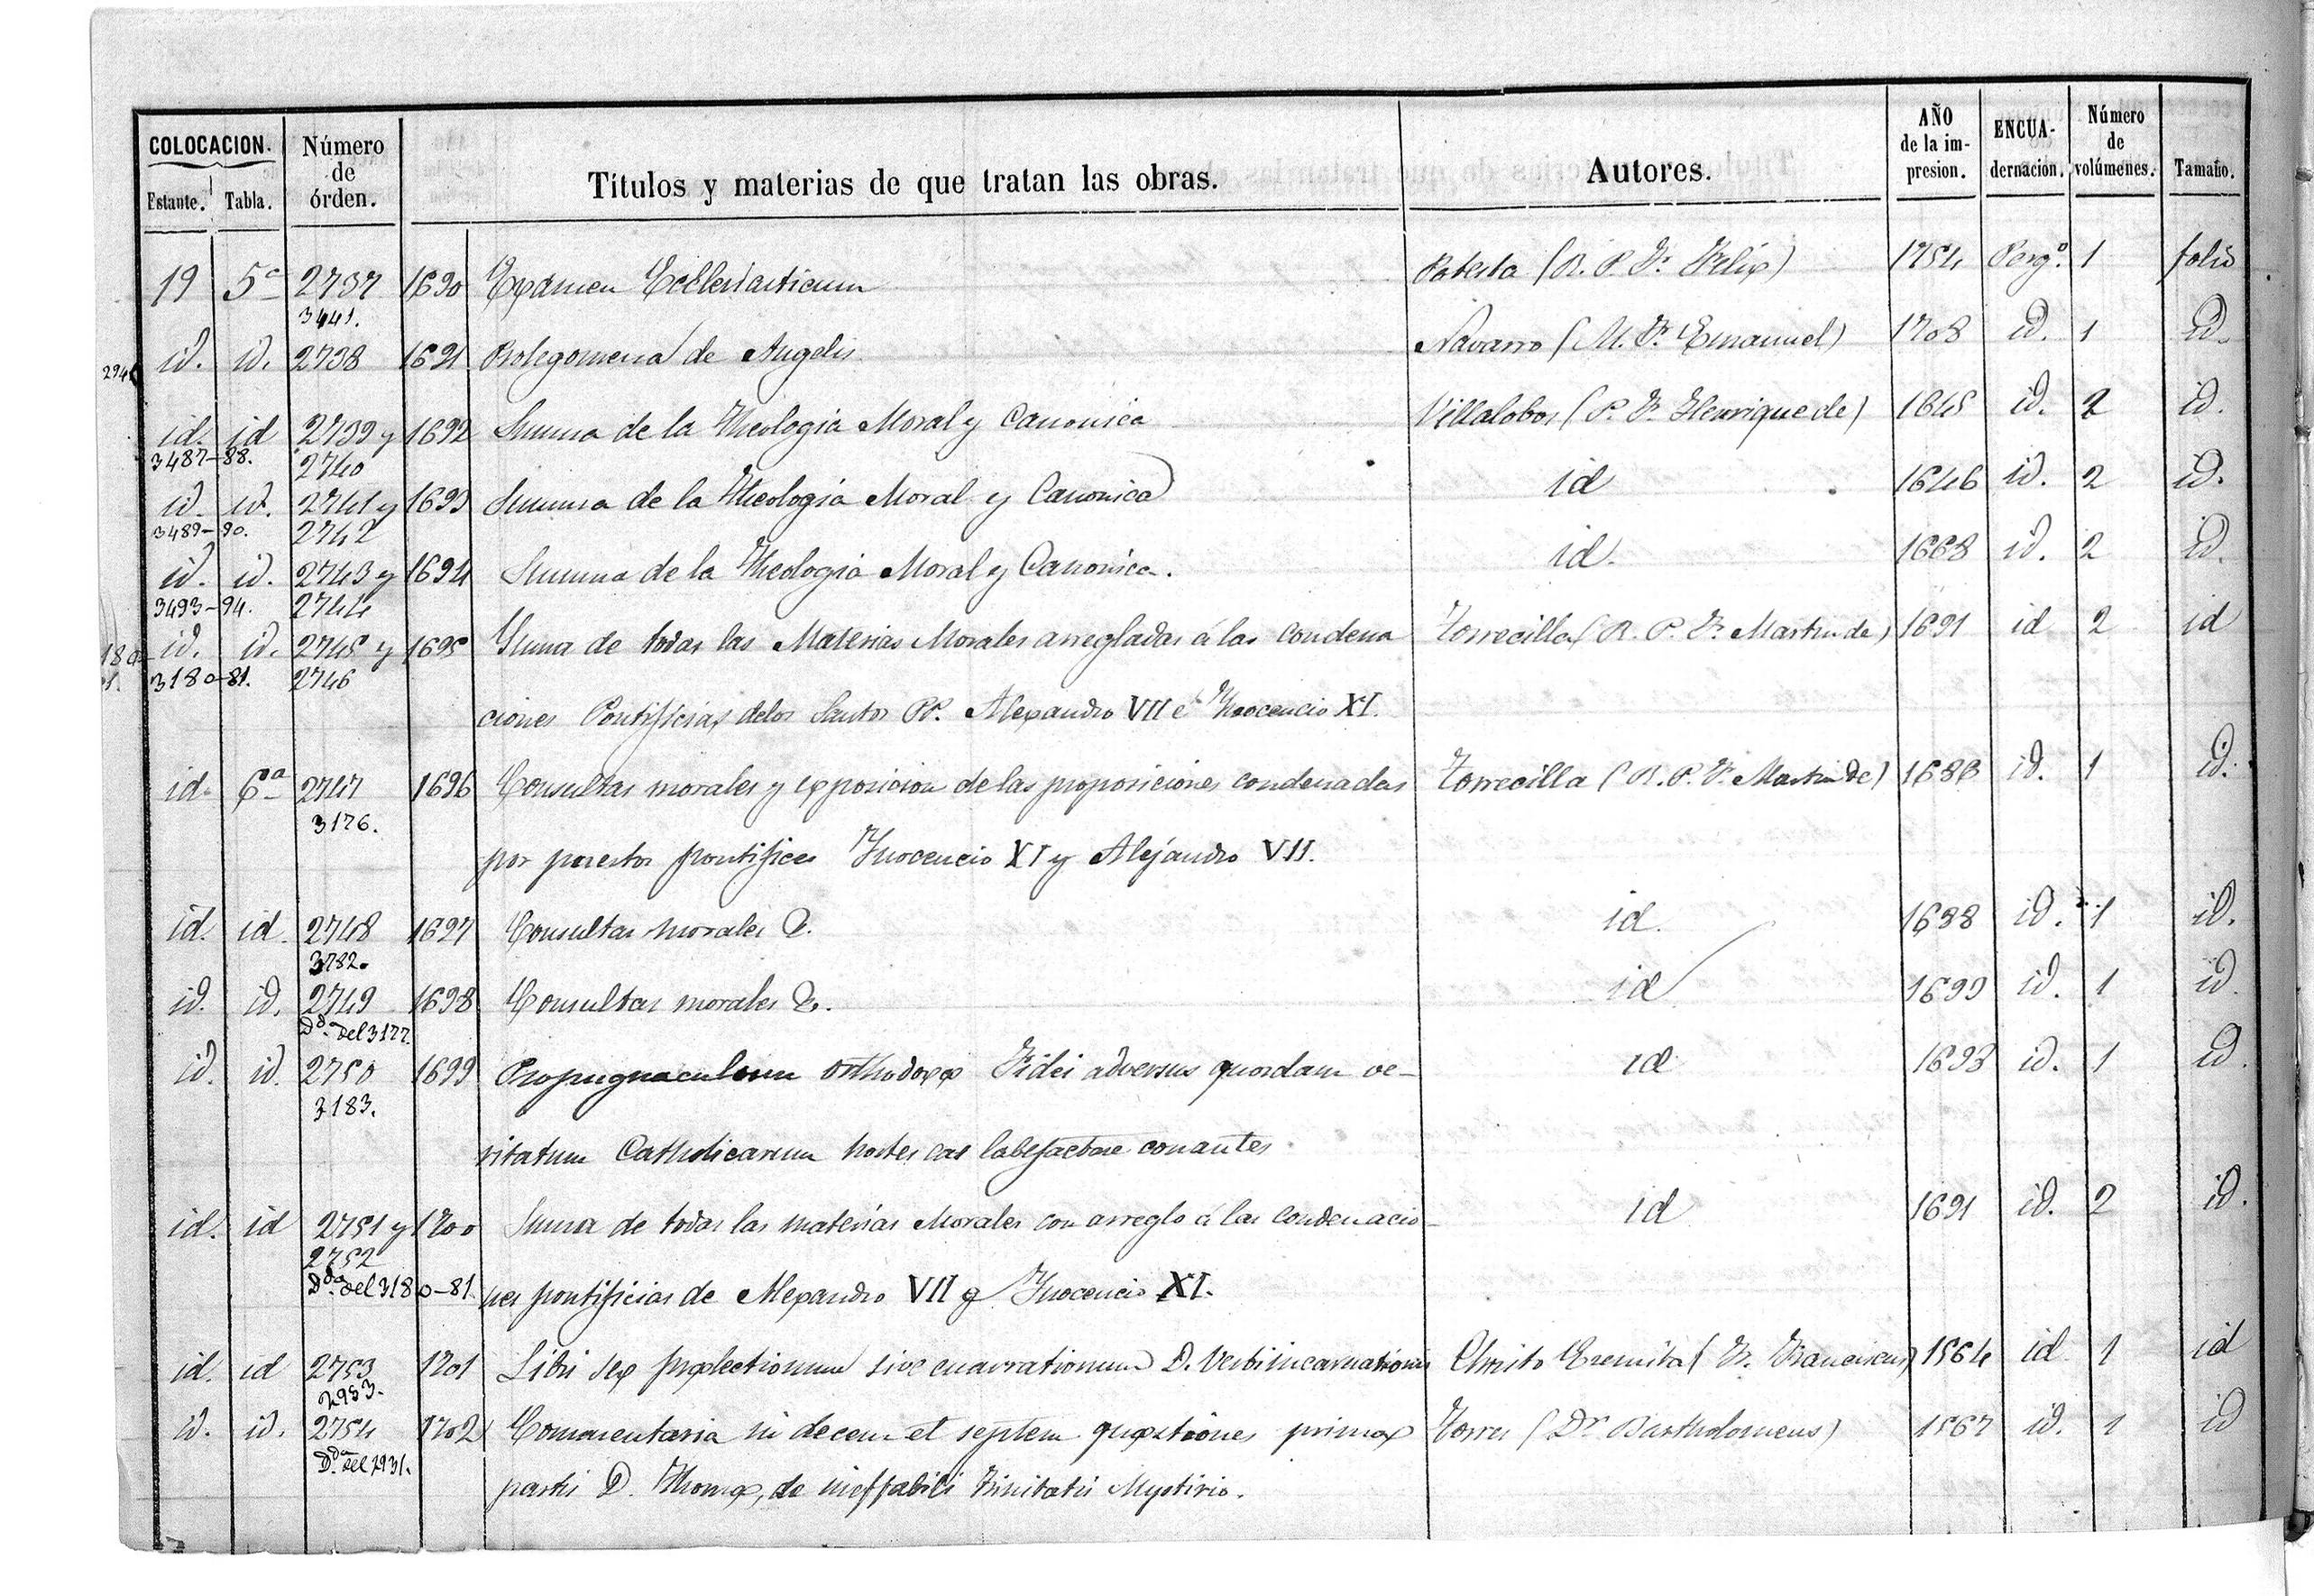 COLOCACION. Número de órden. Títulos y materias de que tratan las obras. Autores. AÑO de la impresion. ENCUADERNACIÓN. Número de volúmenes. Tamaño.
Estante. Tabla.
19 5ª 2737 1690 Examen Ecclesiasticum Potesta (R. P. Fr. Felix) 1754 Perg.º 1 folio
3441.
id. id. 2738 1691 Prolegomena de Angelis Navarro (M. Fr. Emanuel) 1708 id. 1 id.
id. id 2739 y 1692 Summa de la Theologia Moral y Canonica Villalobos (P. Fr. Henrique de) 1645 id. 2 id.
3487-88. 2740
id. id. 2741 y 1693 Summa de la Theologia Moral y Canonica id 1646 id. 2 id.
3489-90. 2742
id. id. 2743 y 1694 Summa de la Theologia Moral y Canonica. id. 1668 id. 2 id.
3493-94. 2744
id. id. 2745 y 1695 Suma de todas las Materias Morales arregladas á las condena Torrecilla (R. P. Fr. Martin de) 1691 id 2 id
3180-81. 2746
ciones Pontificias de los Santos PP. Alexandro VII é Inocencio XI.
id. 6ª 2747 1696 Consultas morales y exposicion de las proposiciones condenadas Torrecilla (R. P. Fr. Martin de) 1686 id. 1 id.
3176.
por nuestros pontifices Inocencio XI y Alejandro VII.
id. id. 2748 1697 Consultas morales &. id. 1688 id. 1 id.
3182.
id. id. 2749 1698 Consultas morales &. id 1699 id. 1 id
Dda. del 3177.
id. id. 2750 1699 Propugnaculum orthodoxæ Fidei adversus quosdam ve- id 1698 id. 1 id.
3183.
ritatum Catholicarum hostes eas labefactare conantes
id. id 2751 y 1700 Suma de todas las materias Morales con arreglo á las condenacio- id 1691 id. 2 id.
2752
Dda. del 3180-81. nes pontificias de Alexandro VII y Inocencio XI.
id. id 2753 1701 Libri sex prælectionum sive enarrationum D. Verbi incarnationis Christo Eremita (Fr. Franciscus) 1564 id 1 id
2953.
id. id. 2754 1702 Commentaria in decem et septem quæstiones primæ Torres (Dr. Bartholomeus) 1567 id. 1 id
Dda. del 2931.
partis D. Thomæ, de ineffabili Trinitatis Mysterio.